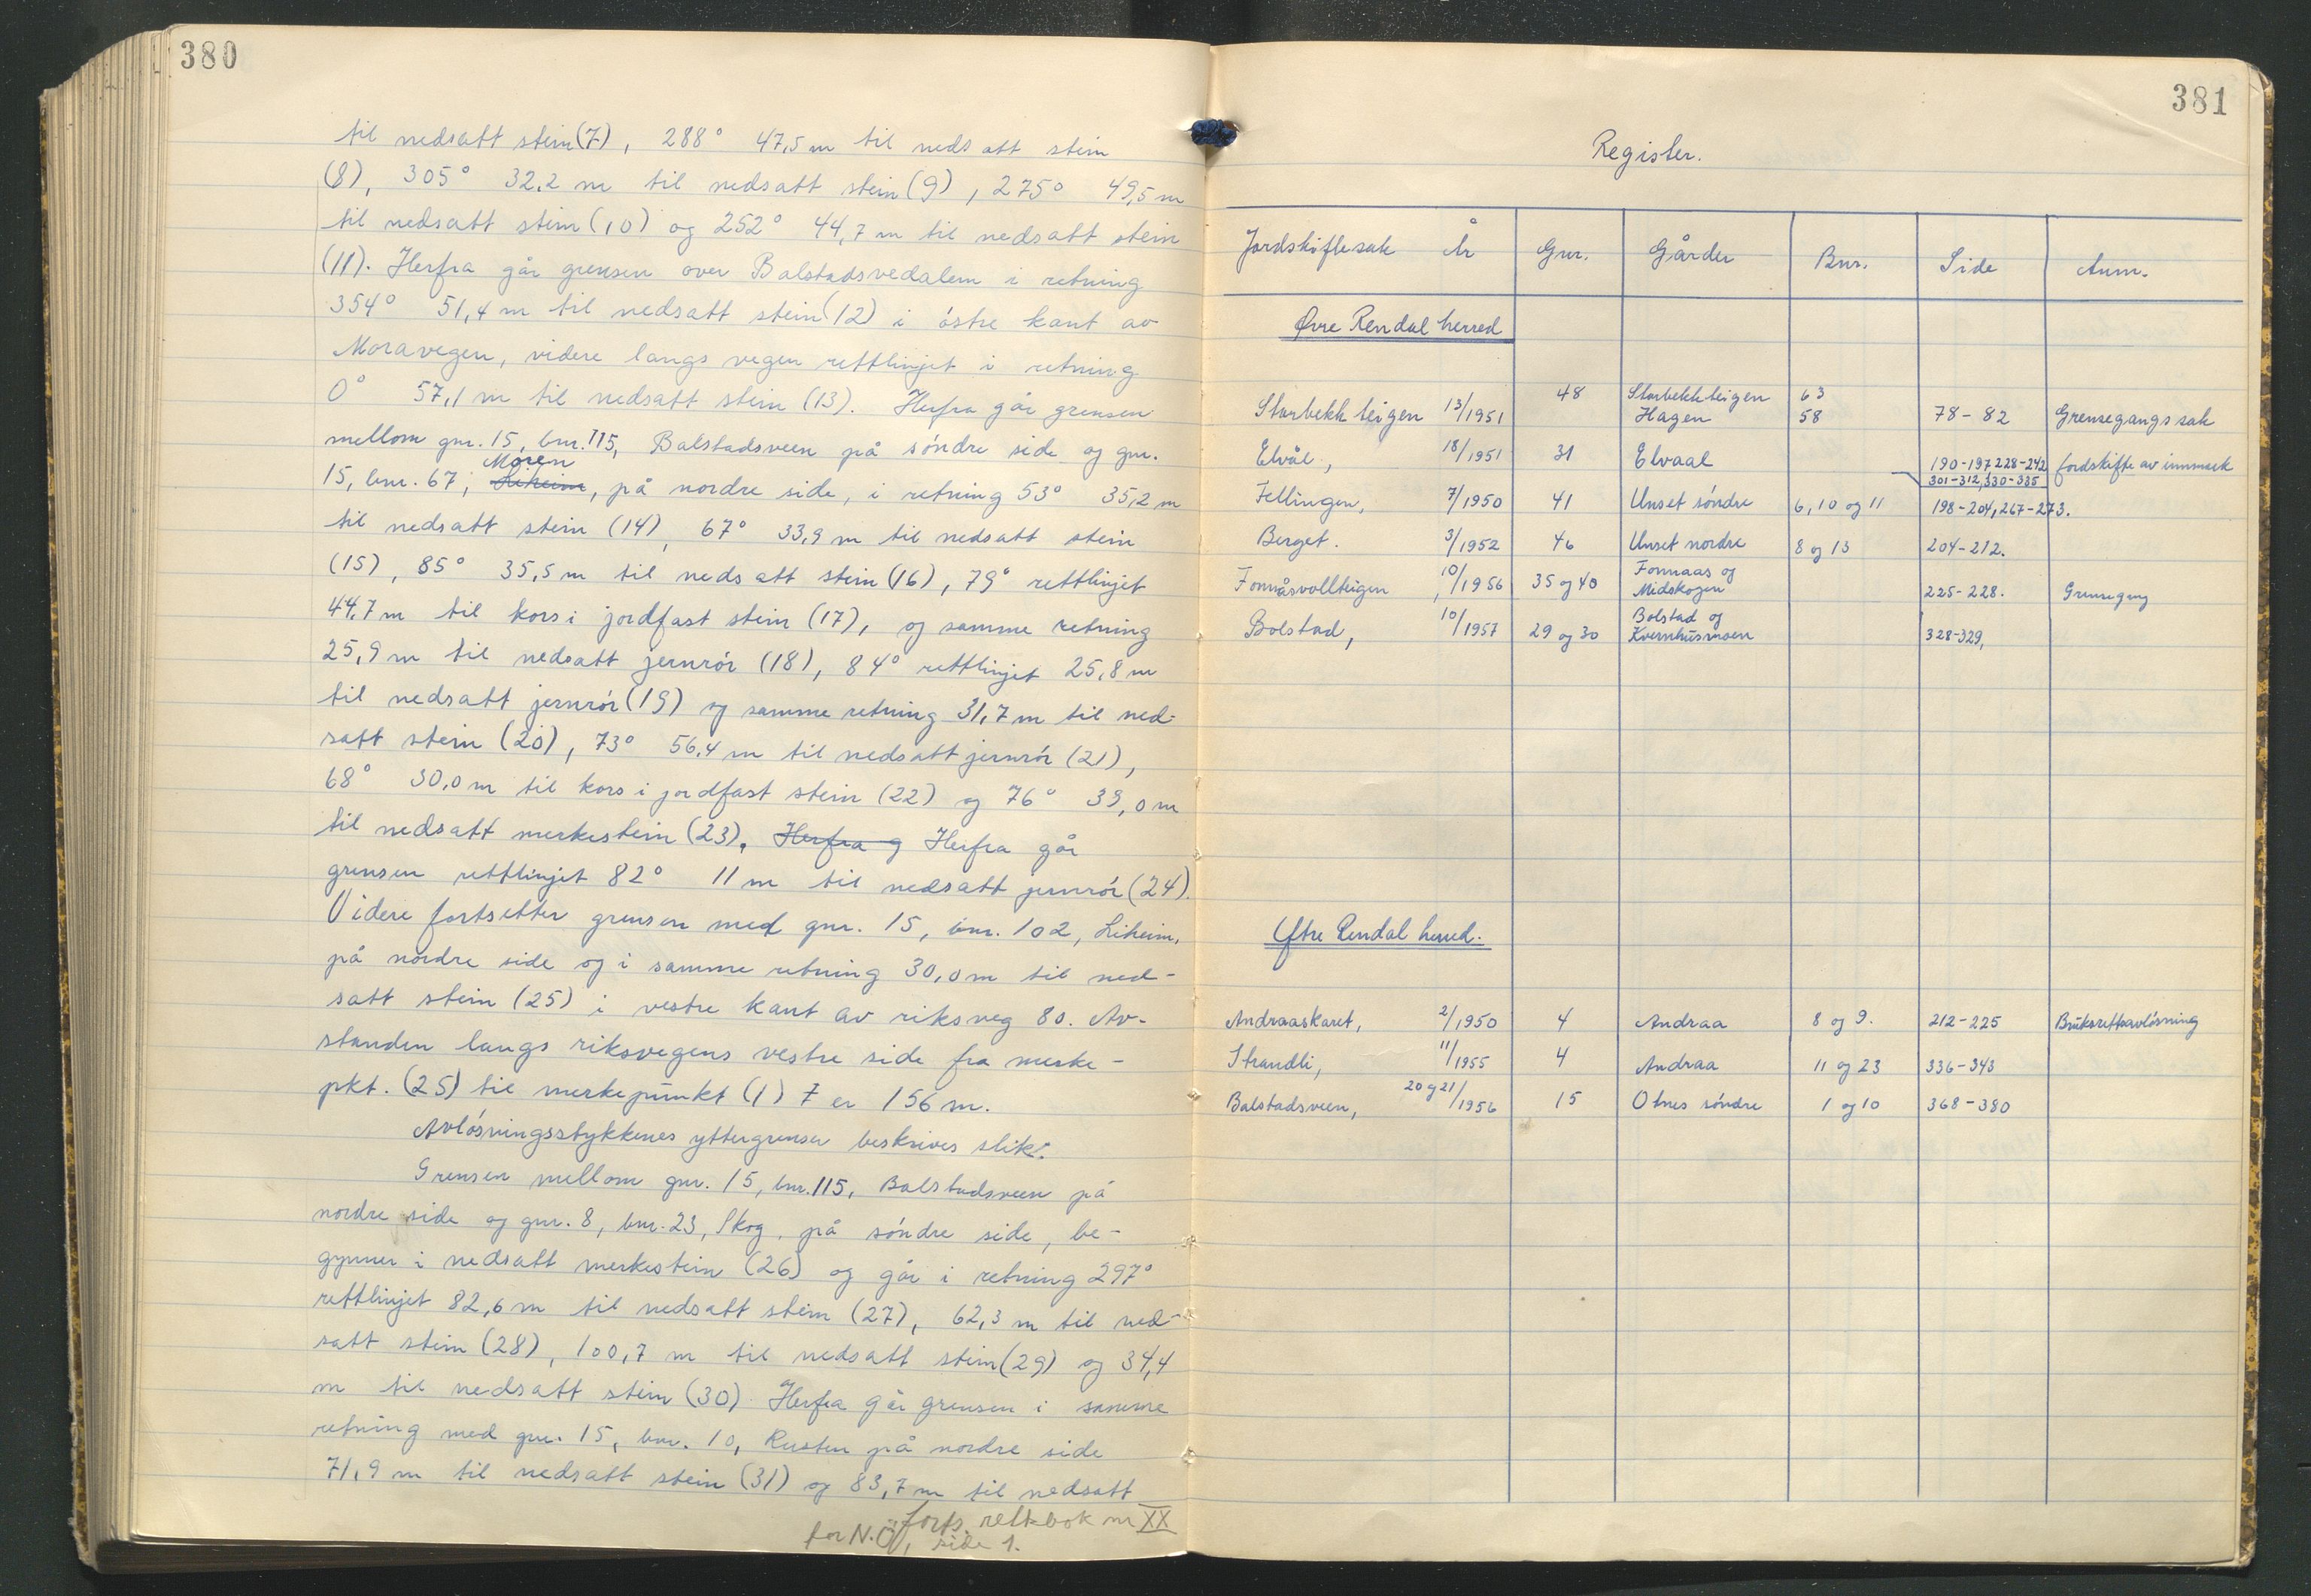 380
til nedsatt stein (7), 288° 47,5 m til nedsatt stein
(8), 305° 32,2 m til nedsatt stein (9), 275° 49,5 m
til nedsatt stein (10) og 252° 44,7 m til nedsatt stein
(11). Herfra går grensen over Balstadsvedalem i retning
354° 51,4 m til nedsatt stein (12) i östre kant av
Moravegen, videre langs vegen rettlinjet i retning
0° 57,1 m til nedsatt stein (13). Herfra går grensen
mellom gnr. 15, bnr. 115, Balstadsveen på söndre side og gnr.
15, bnr. 67, Moren Liheim, på nordre side, i retning 53° 35,2 m
til nedsatt stein (14), 67° 33,9 m til nedsatt stein
(15), 85° 35,5 m til nedsatt stein (16), 79° rettlinjet
44,7 m til kors i jordfast stein (17), og samme retning
25,9 m til nedsatt jernrör (18), 84° rettlinjet 25,8 m
til nedsatt jernrör (19) og samme retning 31,7 m til ned-
satt stein (20), 73° 56,4 m til nedsatt jernrör (21),
68° 30,0 m til kors i jordfast stein (22) og 76° 39,0 m
til nedsatt merkestein (23). Herfra g Herfra går
grensen rettlinjet 82° 11 m til nedsatt jernrör (24).
Videre fortsetter grensen med gnr. 15, bnr. 102, Liheim,
på nordre side og i samme retning 30,0 m til ned-
satt stein (25) i vestre kant av riksveg 80. Av-
standen langs riksvegens vestre side fra merke-
pkt. (25) til merkepunkt (1) er 156 m.
Avlösningsstykkenes yttergrenser beskrives slik:
Grensen mellom gnr. 15, bnr. 115, Balstadsveen på
nordre side og gnr. 8, bnr. 23, Skog, på söndre side, be-
gynner i nedsatt merkestein (26) og går i retning 297°
rettlinjet 82,6 m til nedsatt stein (27), 62,3 m til ned-
satt stein (28), 100,7 m til nedsatt stein (29) og 34,4
m til nedsatt stein (30). Herfra går grensen i samme
retning med gnr. 15, bnr. 10, Rusten på nordre side
71,9 m til nedsatt stein (31) og 83,7 m til nedsatt
forts. rettbok nr XX
for N.Ö, side 1.
381
Register.
Jordskiftesak År Gnr. Gårder Bnr. Side Anm.
Øvre Rendal herred
48 Storbekkteigen 63
Storbekkteigen 13/1951 Hagen 58 78-82 Grensegangssak
Elvål, 18/1951 31 Elvaal 190-197, 228-242 Jordskifte av innmark
301-312, 330-335
Fellingen, 7/1950 41 Unset söndre 6, 10 og 11 198-204, 267-273.
Berget. 3/1952 46 Unset nordre 8 og 13 204-212.
Fonnåsvollteigen, 10/1956 35 og 40 Fonnaas og
Midskogen 225-228. Grensegang
Bolstad, 10/1957 29 og 30 Bolstad og
Kvernhusmoen 328-329,
Ytre Rendal herred.
Andraaskaret, 2/1950 4 Andraa 8 og 9. 212-225 Bruksrettsavlösning
Strandli, 11/1955 4 Andraa 11 og 23 336-343
Balstadsveen, 20 og 21/1956 15 Otnes söndre 1 og 10 368-380